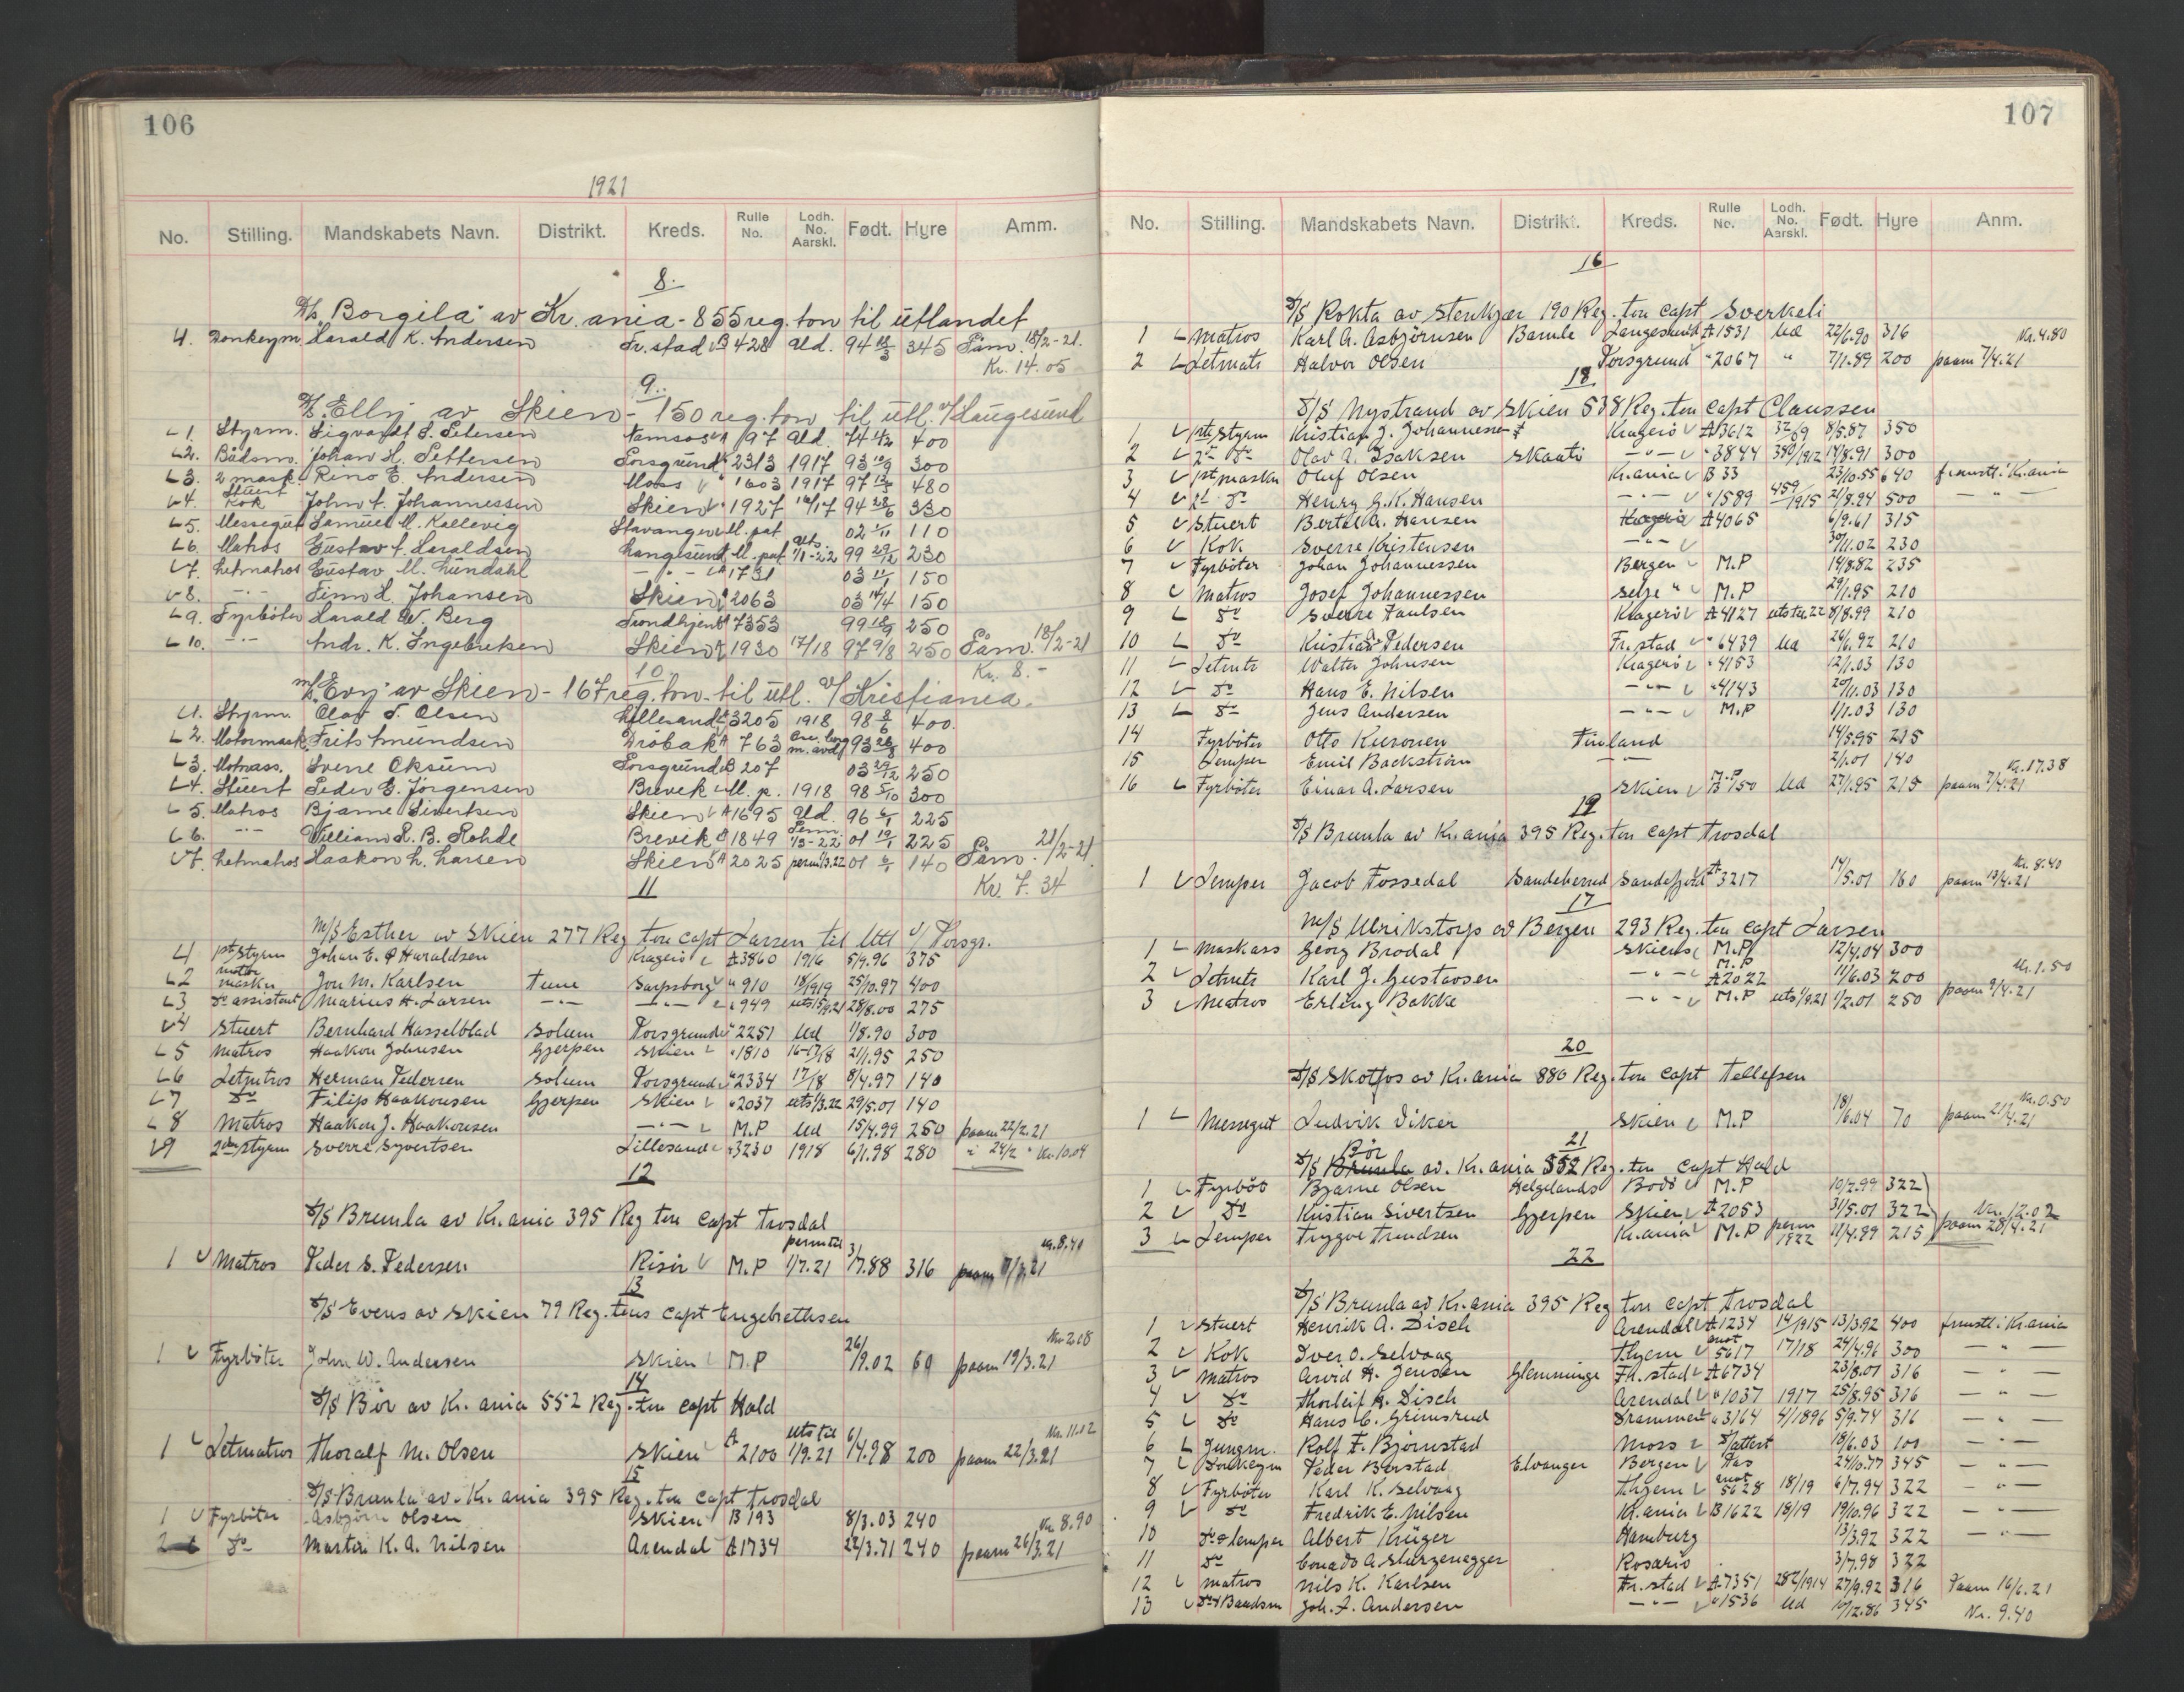 106
1921
No. Stilling. Mandskabets Navn. Distrikt. Kreds. Rulle No. Lodh. No. Aarskl. Født. Hyre Amm.
8.
"Borgila" av Kr.ania - 855 reg. ton til utlandet
4. Donkeym. Harald K. Andersen Fr.stad B 428 Uld. 94 345 Påm. 18/2-21.
Kr. 14.05
9.
Elly av Skien - 150 reg. ton til utl. v/ Langesund
1. Styrm. Sigvardt S. Petersen Namsos 197 Uld. 74 400
2. Bådsm. Johan H. Pettersen Porsgrund 2313 1917 93 300
3. 2 mask. Rino E. Andersen Moss 1603 1917 97 480
4. Stuert Kok John A. Johannessen Skien 1927 16/17 94 28/6 330
5. Messegut Samuel M. Kallevig Stavanger M. pat. 02 110
6. Matros Gustav A. Haraldsen Langesund M. pat. uts. 1/1-22 99 29/12 230
7. Letmatros Gustav M. Lundahl - " - 1731 03 150
8. - " - Finn L. Johansen Skien 2063 03 14/4 150
9. Fyrbøter Harald W. Berg Trondhjem 7353 99 250
10. - " - Andr. K. Ingebretsen Skien 1930 17/18 97 9/8 250 Påm. 18/2-21
Kr. 8.-
10
M/S Evy av Skien - 167 reg. ton - til utl. v/ Kristiania.
1. Styrm. Olav T. Olsen Lillesand 3205 1918 98 400.
2. Motormask. Frits Amundsen Drøbak A 763 93 400
3. Motorass. Sverre Oksum Porsgrund B 207 03 29/12 250
4. Stuert Peder G. Jörgensen Brevik M. p. 1918 98 5/10 300
5. Matros Bjarne Sivertsen Skien A 1695 Uld. 96 225
6. - " - William R. B. Rohde Brevik 1849 Perm 1/3-22 01 19/1 225
7. Letmatros Haakon L. Larsen Skien A 2025 perm 1/3.22 01 140 Påm. 21/2-21.
Kr. 7.34
11
M/S Esther av Skien 277 Reg ton capt Larsen til Utl v/ Porsgr.
1 1st Styrm Johan E. P Haraldsen Kragerö A 3860 1916 5/9.96 375
2 motor maskn Jon M. Karlsen Tune Sarpsborg " 910 18/1919 25/10.97 400
3 Do assistent Marius A. Larsen - " - - " - " 949 28/8.00 275
4 Stuert Bernhard Hasselblad Solum Porsgrund " 2251 Ud 1/8.90 300
5 Matros Haakon Johnsen Gjerpen Skien " 1810 16-17/18 21/1.95 250
6 Letmtros Herman Pedersen Solum Porsgrund " 2334 17/18 8/4.97 140
7 Do Filip Haakonsen Gjerpen Skien " 2037 uts 1/3.22 29/5.01 140
8 Matros Haakon J. Haakonsen - " - M.P Ud 15/4.99 250 paam 22/2.21
9 2den Styrm Sverre Syvertsen Lillesand " 3230 1918 6/1.98 280 " 24/2 " Kr. 10.04
12
D/S Brunla av Kr.ania 395 Reg ton Capt Trosdal
1 Matros Peder S. Pedersen Risör M.P perm til 1/7.21 3/7.88 316 paam 7/3.21
Kr. 8.40
13
D/S Evens av Skien 79 Reg. tons capt Engebrethsen
1 Fyrböter John W. Andersen Skien M.P 26/9.02 60 paam 19/3.21
Kr 2.08
14
D/S Bör av Kr.ania 552 Reg. ton capt Hald
1 Letmatros Thoralf M. Olsen Skien A 2100 uts til 1/9.21 6/4.98 200 paam 22/3.21
Kr. 11.12
15
D/S Brunla av. Kr.ania 395 Reg. ton capt Trosdal
1 Fyrböter Asbjörn Olsen Skien B 193 8/3.03 240 Kr 8.90
2 Do Martin K. A. Nilsen Arendal A 1734 22/3.71 240 paam 26/3.21
107
No. Stilling. Mandskabets Navn. Distrikt. Kreds. Rulle No. Lodh. No. Aarskl. Født. Hyre Anm.
16
D/S Rokta av Stenkjær 190 Reg. ton capt Sverkeli
1 Matros Karl A. Asbjörnsen Bamle Langesund A 1531 Ud 22/6.90 316 Kr. 4.80
2 Letmatr Halvor Olsen Porsgrund " 2067 " 7/1.89 200 paam 7/4.21
18
D/S Nystrand av Skien 538 Reg. ton capt Claussen
1 1ste Styrm Kristian J. Johannessen Kragerö A 3612 32/09 8/5.87 350
2 2n Do Olav A. Isaksen Skaatö - " - " 3844 390/1912 14/8.91 300
3 1st maskn Oluf Olsen Kr.ania B 33 23/10.55 640 frmstl. i Kr.ania
4 2d Do Henry G.K. Hansen - " - " 1589 459/1915 21/8.94 500 - " -
5 Stuert Bertel A. Hansen Kragerö A 4065 6/9.61 315
6 Kok Sverre Kristensen - " - 30/11.02 230
7 Fyrböter Johan Johannessen Bergen M.P 14/8.82 235
8 Matros Josef Johannessen Selje " M.P 29/1.95 210
9 Do Sverre Paulsen Kragerö A 4127 8/8.99 210
10 Do Kristian Pedersen Fr.stad " 6439 Ud 26/6.92 210
11 Letmtr Walter Johnsen Kragerö " 4153 2/1.03 130
12 Do Hans E. Nilsen - " - " 4143 20/11.03 130
13 Do Jens Andersen - " - M.P 1/1.03 130
14 Fyrböter Otto Kuronen Finland 14/5.95 215
15 Lemper Emil Backström - " - 2/1.01 140
16 Fyrböter Einar A. Larsen Skien M.P B 150 Ud 27/1.95 215 paam 7/4.21
Kr. 17.38
19
D/S Brunla av Kr.ania 395 Reg. ton capt Trosdal
1 Lemper Jacob Fossedal Sandeherred Sandefjord A 3217 14/5.01 160 paam 13/4.21
Kr. 8.40
17
M/S Ulrikstorp av Bergen 293 Reg. ton capt Larsen
1 Maskass Georg Brodal Skiens M.P 12/4.04 300
2 Letmtr Karl J. Gustavsen - " - M.P A 2022 11/6.03 200 Kr. 1.50
3 Matros Erling Bakke - " - M.P uts 1/9.21 1/2.01 250 paam 9/4.21
20
D/S Skotfos av Kr.ania 880 Reg. ton capt Tellefsen
1 Messegut Ludvik Viker Skien M.P 18/6.04 70 paam 21/4.21
Kr. 0.50
21
D/S Brunla Bör av. Kr.ania 552 Reg. ton Capt Hald
1 Fyrböt Bjarne Olsen Helgelands Bodö M.P 10/2.99 322
2 Do Kristian Sivertsen Gjerpen Skien A 2053 31/5.01 322 Kr. 12.02
3 Lemper Trygve Trundsen Kr.ania M.P perm 1922 11/4.99 215 paam 28/4.21
22
D/S Brunla av Kr.ania 395 Reg ton capt Trosdal
1 Stuert Henrik A. Disch Arendal A 1234 14/1915 13/3.92 400 frmstl i Kr.ania
2 Kok Iver O. Selvaag Thjem 5617 17/18 24/4.96 300 - " -
3 Matros Arvid H. Jensen Glemminge Fr.stad A 6734 23/8.01 316 - " -
4 Do Thorleif A. Disch Arendal " 1037 1917 25/8.95 316 - " -
5 Do Hans C. Grimsrud Drammen " 3164 4/1896 5/9.74 316 - " -
6 Jungm. Rolf F. Björnstad Moss D/attest 18/6.03 100 - " -
7 Donkeym Peder Berstad Elvanger Bergen Pas 24/10.77 345 - " -
8 Fyrböter Karl K. Selvaag Thjem 5628 18/19 6/7.94 322 - " -
9 Do Fredrik E. Nilsen Kr.ania B 1622 18/19 19/10.96 322 - " -
10 Do Lemper Albert Krüger Hamburg 13/3.92 322 - " -
11 Do Conrado A. Sturzenegger Rosario 3/7.98 322
12 Matros Nils K. Karlsen Fr.stad A 7351 282/1914 27/9.92 316 Paam 16/6.21
13 Do & Baadsm Joh. F. Andersen - " - " 1536 Ud 10/12.86 345 Kr. 9.40